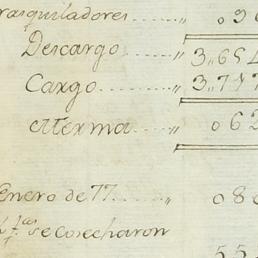 rasquiladores........〃 ,,03
Descargo......〃 3,,654
Cargo........〃 3,,717
Merma....〃 062
Enero de 77.....〃 ,,08
se cosecharon
55